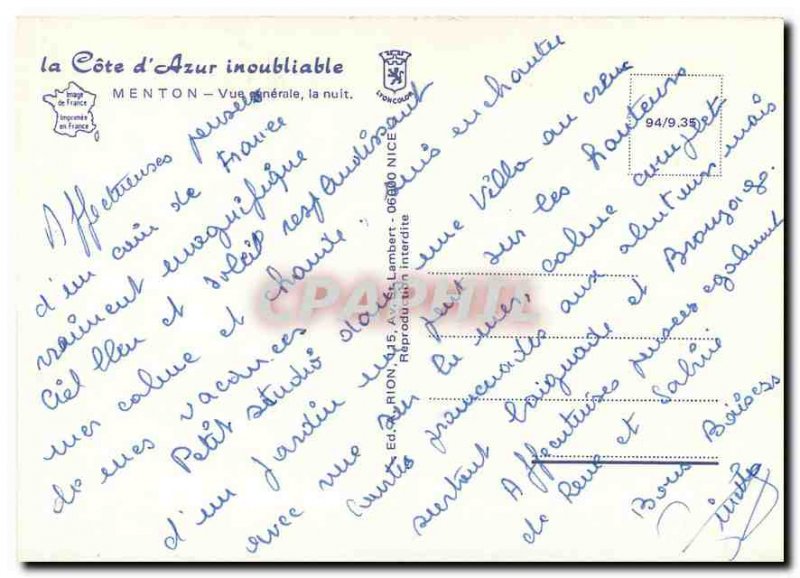 la Côte d'Azur inoubliable
MENTON - Vue générale, la nuit.
Image
de France
Imprimée
en France
LYONCOLOR
94/9.35
RION, 115, Av. St Lambert - 06000 NICE
Reproduction interdite
CPAPHIL
Affectueuses pensées
d'un coin de France
vraiment magnifique
Ciel bleu et soleil resplendissant
mer calme et chaude. Suis enchantée
de mes vacances
Petit studio dans une Villa au creux
d'un jardin un peu sur les hauteurs
avec vue sur la mer, calme complet
Courtes promenades aux alentours mais
surtout baignade et Bronzage.
Affectueuses pensées également
de René et Sabine
Bons Baisers